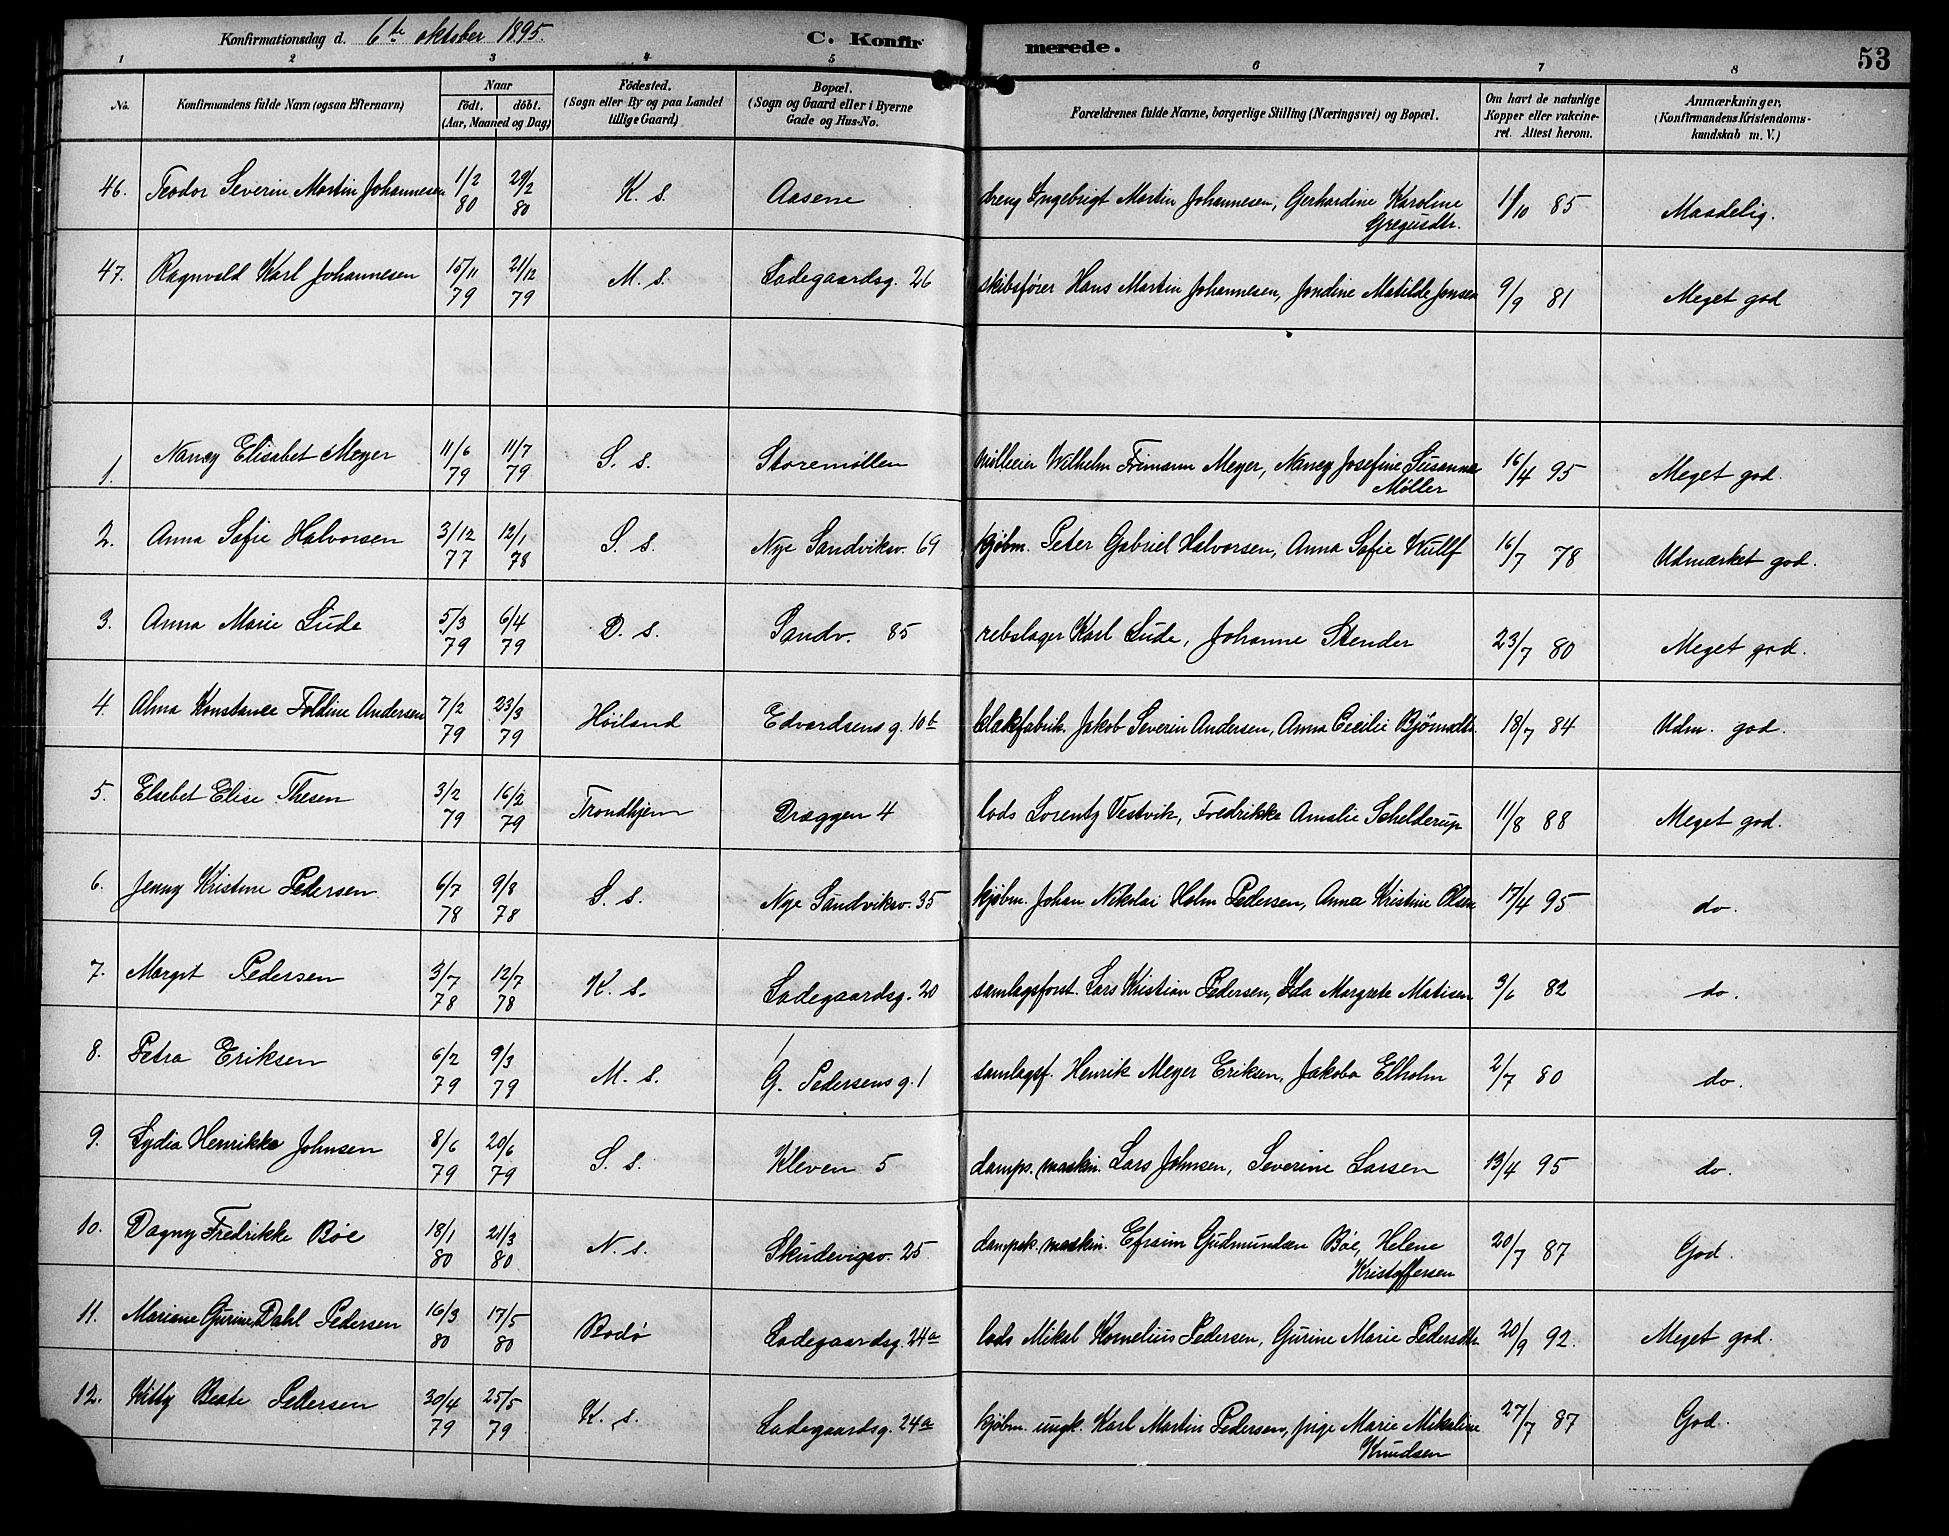 Konfirmationsdag d. 6te oktober 1895. C. Konfirmerede. 53
1 2 3 4 5 6 7 8
No. Konfirmandens fulde Navn (ogsaa Efternavn) Naar födt. döbt. (Aar, Maaned og Dag) Födested. (Sogn eller By og paa Landet tillige Gaard) Bopæl. (Sogn og Gaard eller i Byerne Gade og Hus-No. Forældrenes fulde Navne, borgerlige Stilling (Næringsvei) og Bopæl. Om havt de naturlige Kopper eller vakcineret. Attest herom. Anmærkninger, (Konfirmandens Kristendomskundskab m. V.)
46. Teodor Severin Martin Johannesen 1/2 80 29/2 80 K. s. Aasene dreng Ingebrigt Martin Johannesen, Gerhardine Karoline Gregusdtr. 1/10 85 Maadelig.
47. Ragnvald Karl Johannesen 15/11 79 21/12 79 M. s. Ladegaardsg. 26 skibsfører Hans Martin Johannesen, Jondine Matilde Jonsen 9/9 81 Meget god
1. Nancy Elisabet Meyer 11/6 79 11/7 79 S. s. Storemøllen mølleeier Wilhelm Frimann Meyer, Nancy Josefine Susanna Møller 16/4 95 Meget god.
2. Anna Sofie Halvorsen 3/12 77 12/1 78 S. s. Nye Sandviksv. 69 kjøbm. Peter Gabriel Halvorsen, Anna Sofie Wullf 16/7 78 Udmærket god.
3. Anna Marie Lude 5/3 79 6/4 79 D. s. Sandv. 85 rebslager Karl Lude, Johanne Stender 23/7 80 Meget god.
4. Alma Konstance Toldine Andersen 7/2 79 23/3 79 Høiland Edvardsens g. 10b blakfabrik. Jakob Severin Andersen, Anna Cecilie Bjørnsdtr. 18/7 84 Udm. god.
5. Elsebet Elise Thesen 3/2 79 16/2 79 Trondhjem Dræggen 4 lods Lorentz Vestvik, Fredrikke Amalie Schelderup 11/8 88 Meget god.
6. Jenny Kristine Pedersen 6/7 78 9/8 78 S. s. Nye Sandviksv. 35 kjøbm. Johan Nikolai Holm Pedersen, Anna Kristine Olsen 17/4 95 do.
7. Margit Pedersen 3/7 78 12/7 78 K. s. Ladegaardsg. 20 samlagsforst. Lars Kristian Pedersen, Ida Margrete Matisen 3/6 82 do.
8. Petra Eriksen 6/2 79 9/3 79 M. s. G. Pedersens g. 1 samlagsf. Henrik Meyer Eriksen, Jakoba Elholm 2/7 80 do.
9. Lydia Henrikke Johnsen 8/6 79 20/6 79 S. s. Kleven 5 damps. maskin. Lars Johnsen, Severine Larsen 13/4 95 do.
10. Dagny Fredrikke Bøe 18/1 80 21/3 80 N. s. Skudevigsv. 25 dampsk. maskin. Efraim Gudmundsen Bøe, Helene Kristoffersen 20/7 87 God.
11. Mariane Gurine Dahl Pedersen 16/3 80 17/5 80 Bodø Ladegaardsg. 24a lods Mikal Kornelius Pedersen, Gurine Marie Pedersdtr. 20/9 92. Meget god.
12. Kitty Beate Pedersen 30/4 79 25/5 79 K. s. Ladegaardsg. 24a kjøbm. ungk. Karl Martin Pedersen, pige Marie Mikaline Knudsen 27/7 87 God.